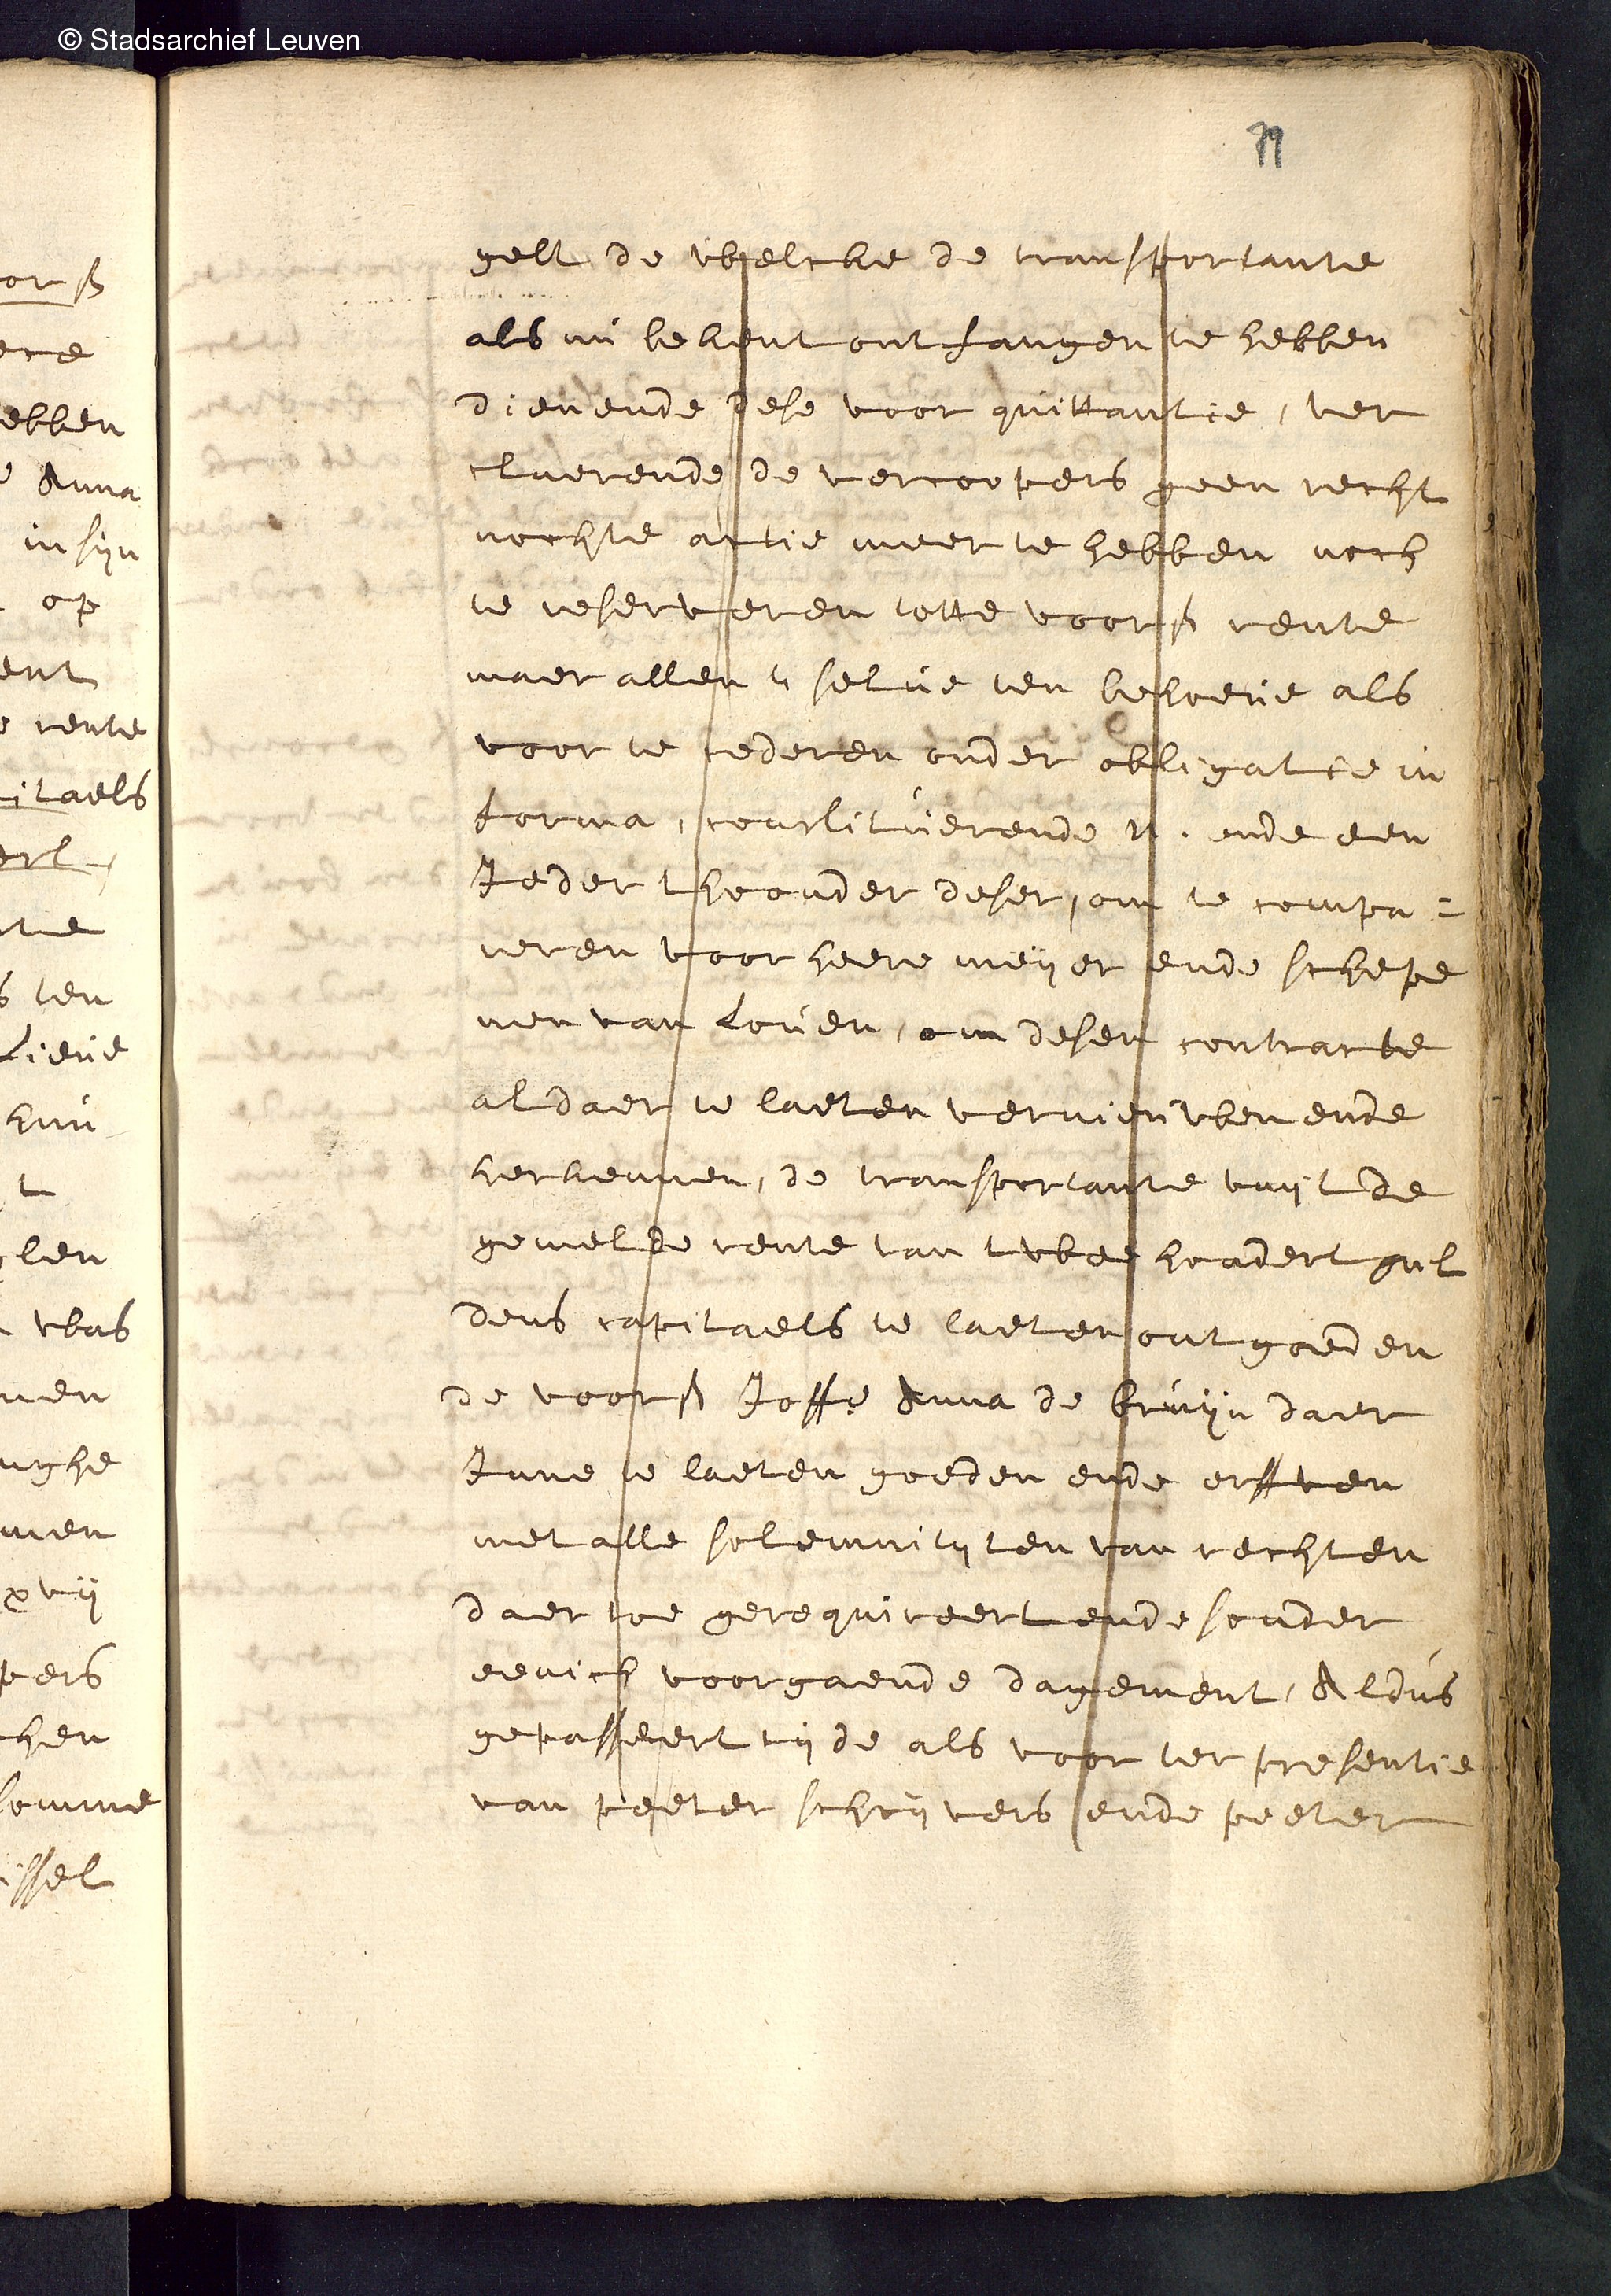 © Stadsarchief Leuven
79
gelt de welcke de transportante
als nu bekent ontfangen te hebben
dienende dese voor quittantie, ver
claerende de vercoopers geen recht
nochte actie meer te hebben noch
te reserveren totte voorß rente
maer allen t selve ten behoeve als
voor te cederen onder obligatie in
forma, constituerende N. ende een
Ieder thoonder deser, om te compa=
reren voor heere meijer ende schepe
nen van Loven, om desen contracte
aldaer te laeten vernieuwen ende
herkennen, de transportante vuijt de
gemelde rente van twee hondert gul
dens capitaels te laeten ontgoeden
de voorß Joffe Anna de bruijn daer
Inne te laeten goeden ende erffven
met alle solemnitijten van rechten
daer toe gerequireert ende sonder
eenich voorgaende dagement, Aldus
gepasseert tijde als voor ter presentie
van peeter schrijvers ende peeter
orß
ebben
Anna
in sijn
op
ent
rente
itaels
ten
hun
len
was
nen
men
xvij
pers
hen
somme
issel